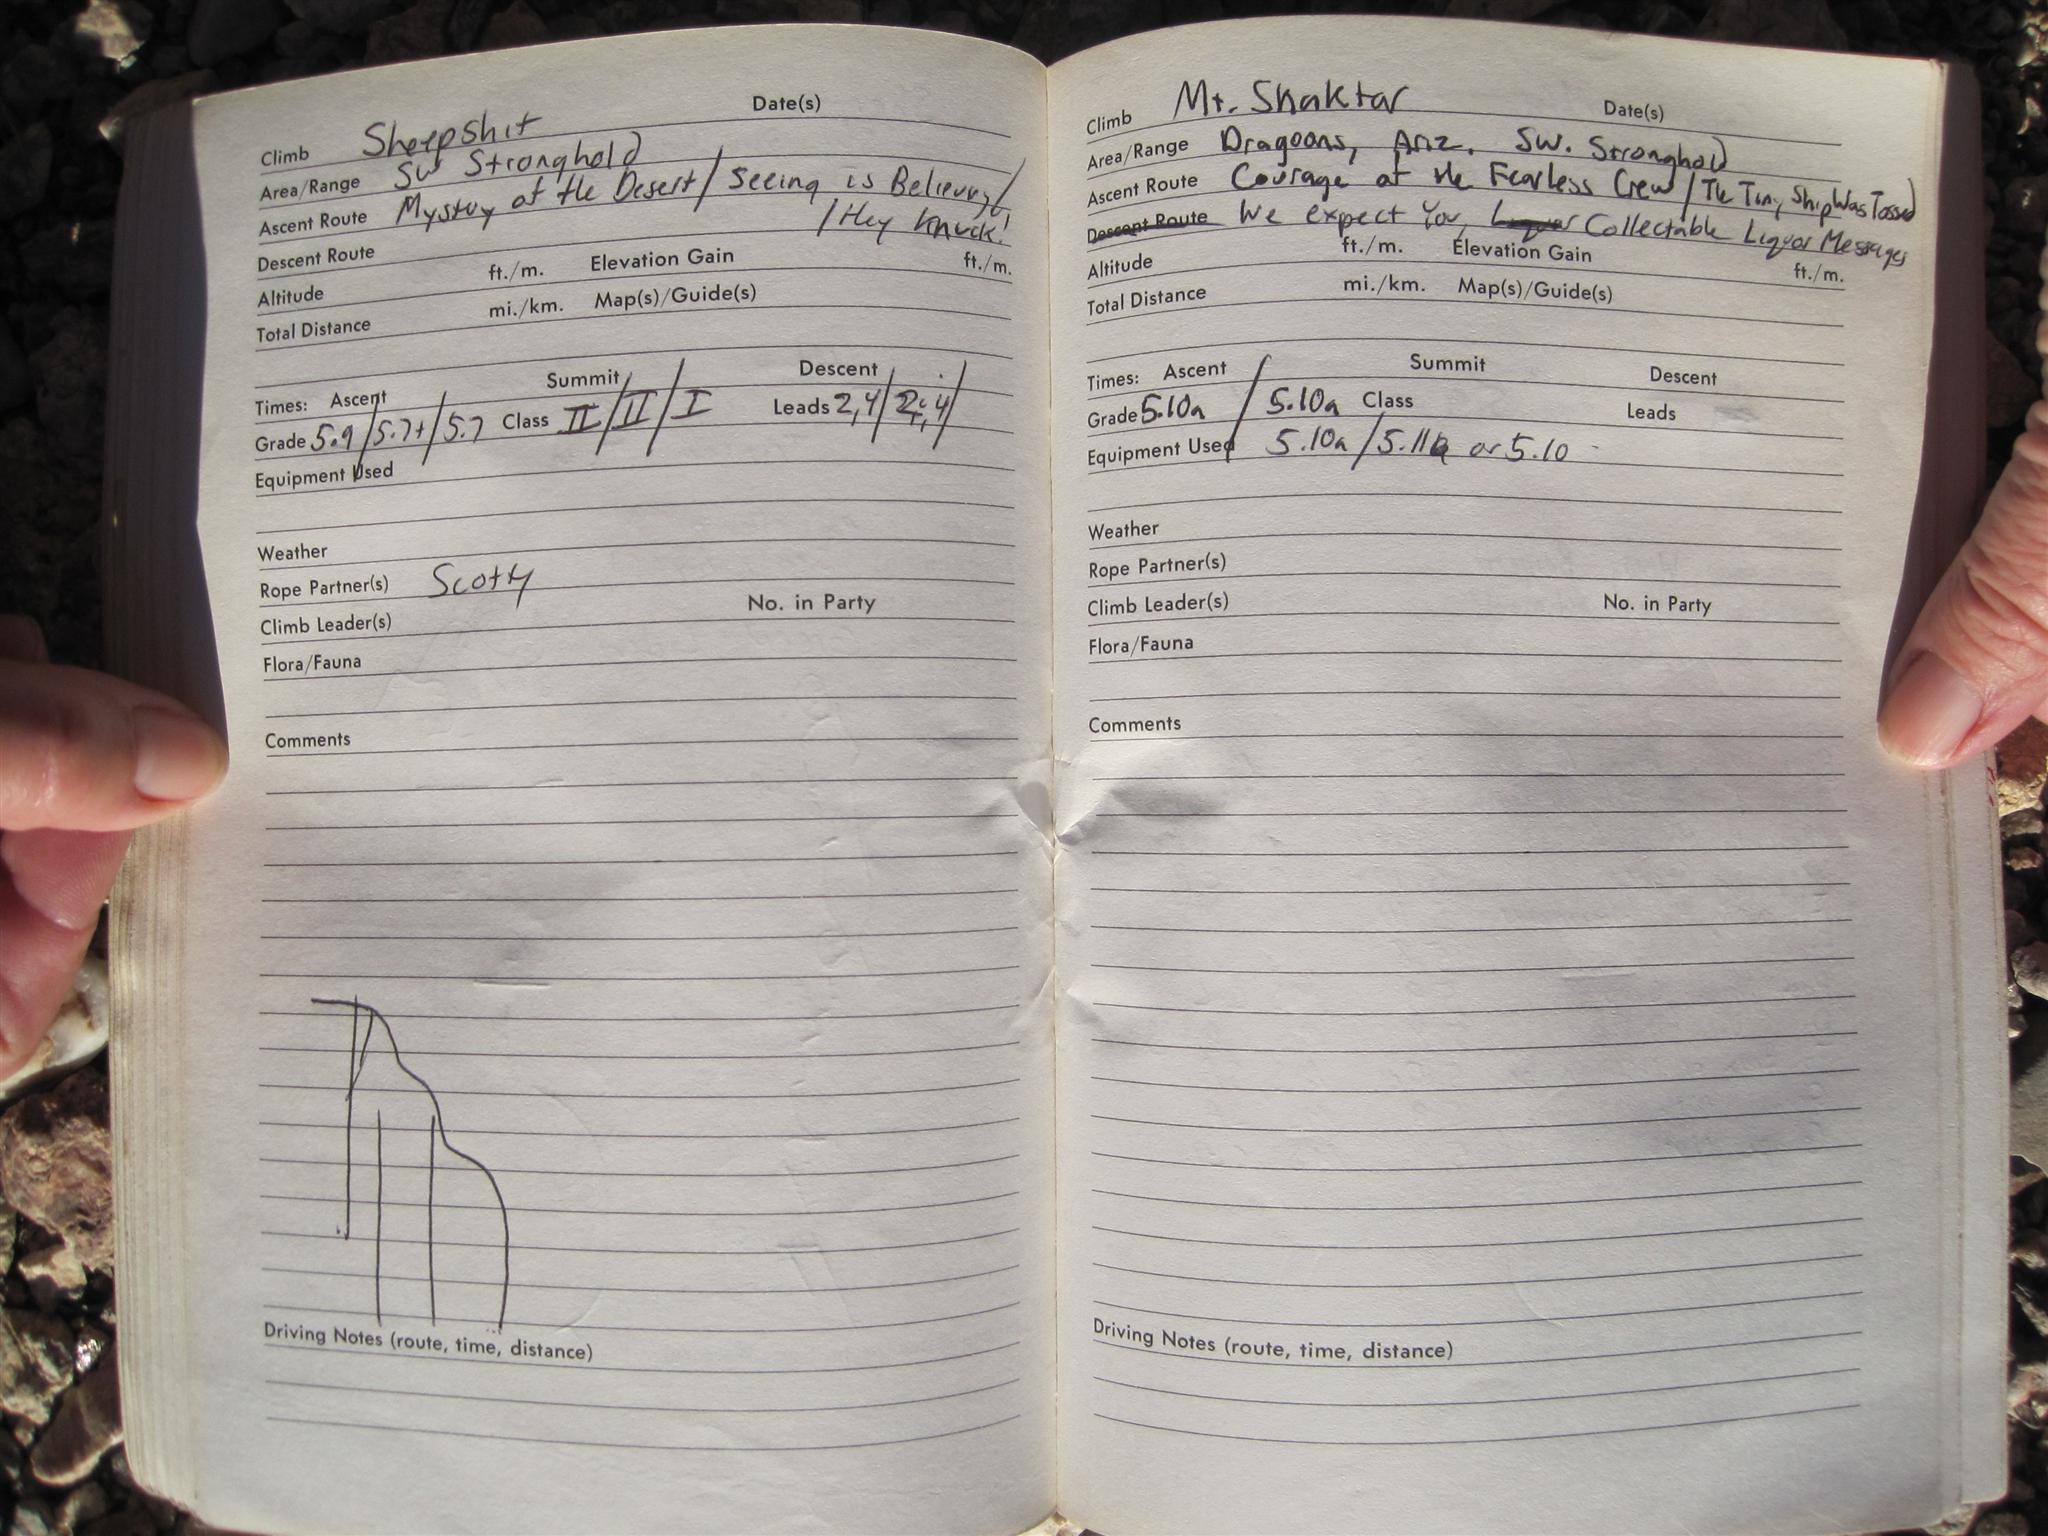 Climb Sheepshit Date(s)
Area/Range SW Stronghold
Ascent Route Mystery of the Desert / Seeing is Believing /
Descent Route / Hey Knuck!
Altitude ft./m. Elevation Gain ft./m.
Total Distance mi./km. Map(s)/Guide(s)
Times: Ascent Summit Descent
Grade 5.9 / 5.7+ / 5.7 Class II / II / I Leads 2, 4 /
Equipment Used
Weather
Rope Partner(s) Scotty
Climb Leader(s) No. in Party
Flora/Fauna
Comments
Driving Notes (route, time, distance)
Climb Mt. Shaktar Date(s)
Area/Range Dragoons, Ariz. SW. Stronghold
Ascent Route Courage of the Fearless Crew / The Tiny Ship Was Tossed
Descent Route We expect You, Liquor Collectable Liquor Messages
Altitude ft./m. Elevation Gain ft./m.
Total Distance mi./km. Map(s)/Guide(s)
Times: Ascent Summit Descent
Grade 5.10a / 5.10a Class Leads
Equipment Used 5.10a / 5.11a or 5.10
Weather
Rope Partner(s)
Climb Leader(s) No. in Party
Flora/Fauna
Comments
Driving Notes (route, time, distance)